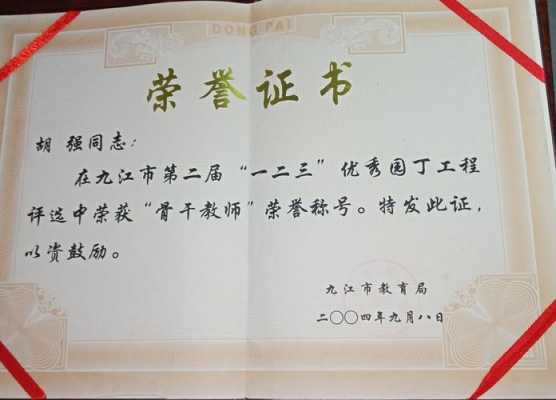 DONG PAI
荣誉证书
胡 强同志：
在九江市第二届“一二三”优秀园丁工程
评选中荣获“骨干教师”荣誉称号。特发此证，
以资鼓励。
九江市教育局
二〇〇四年九月八日